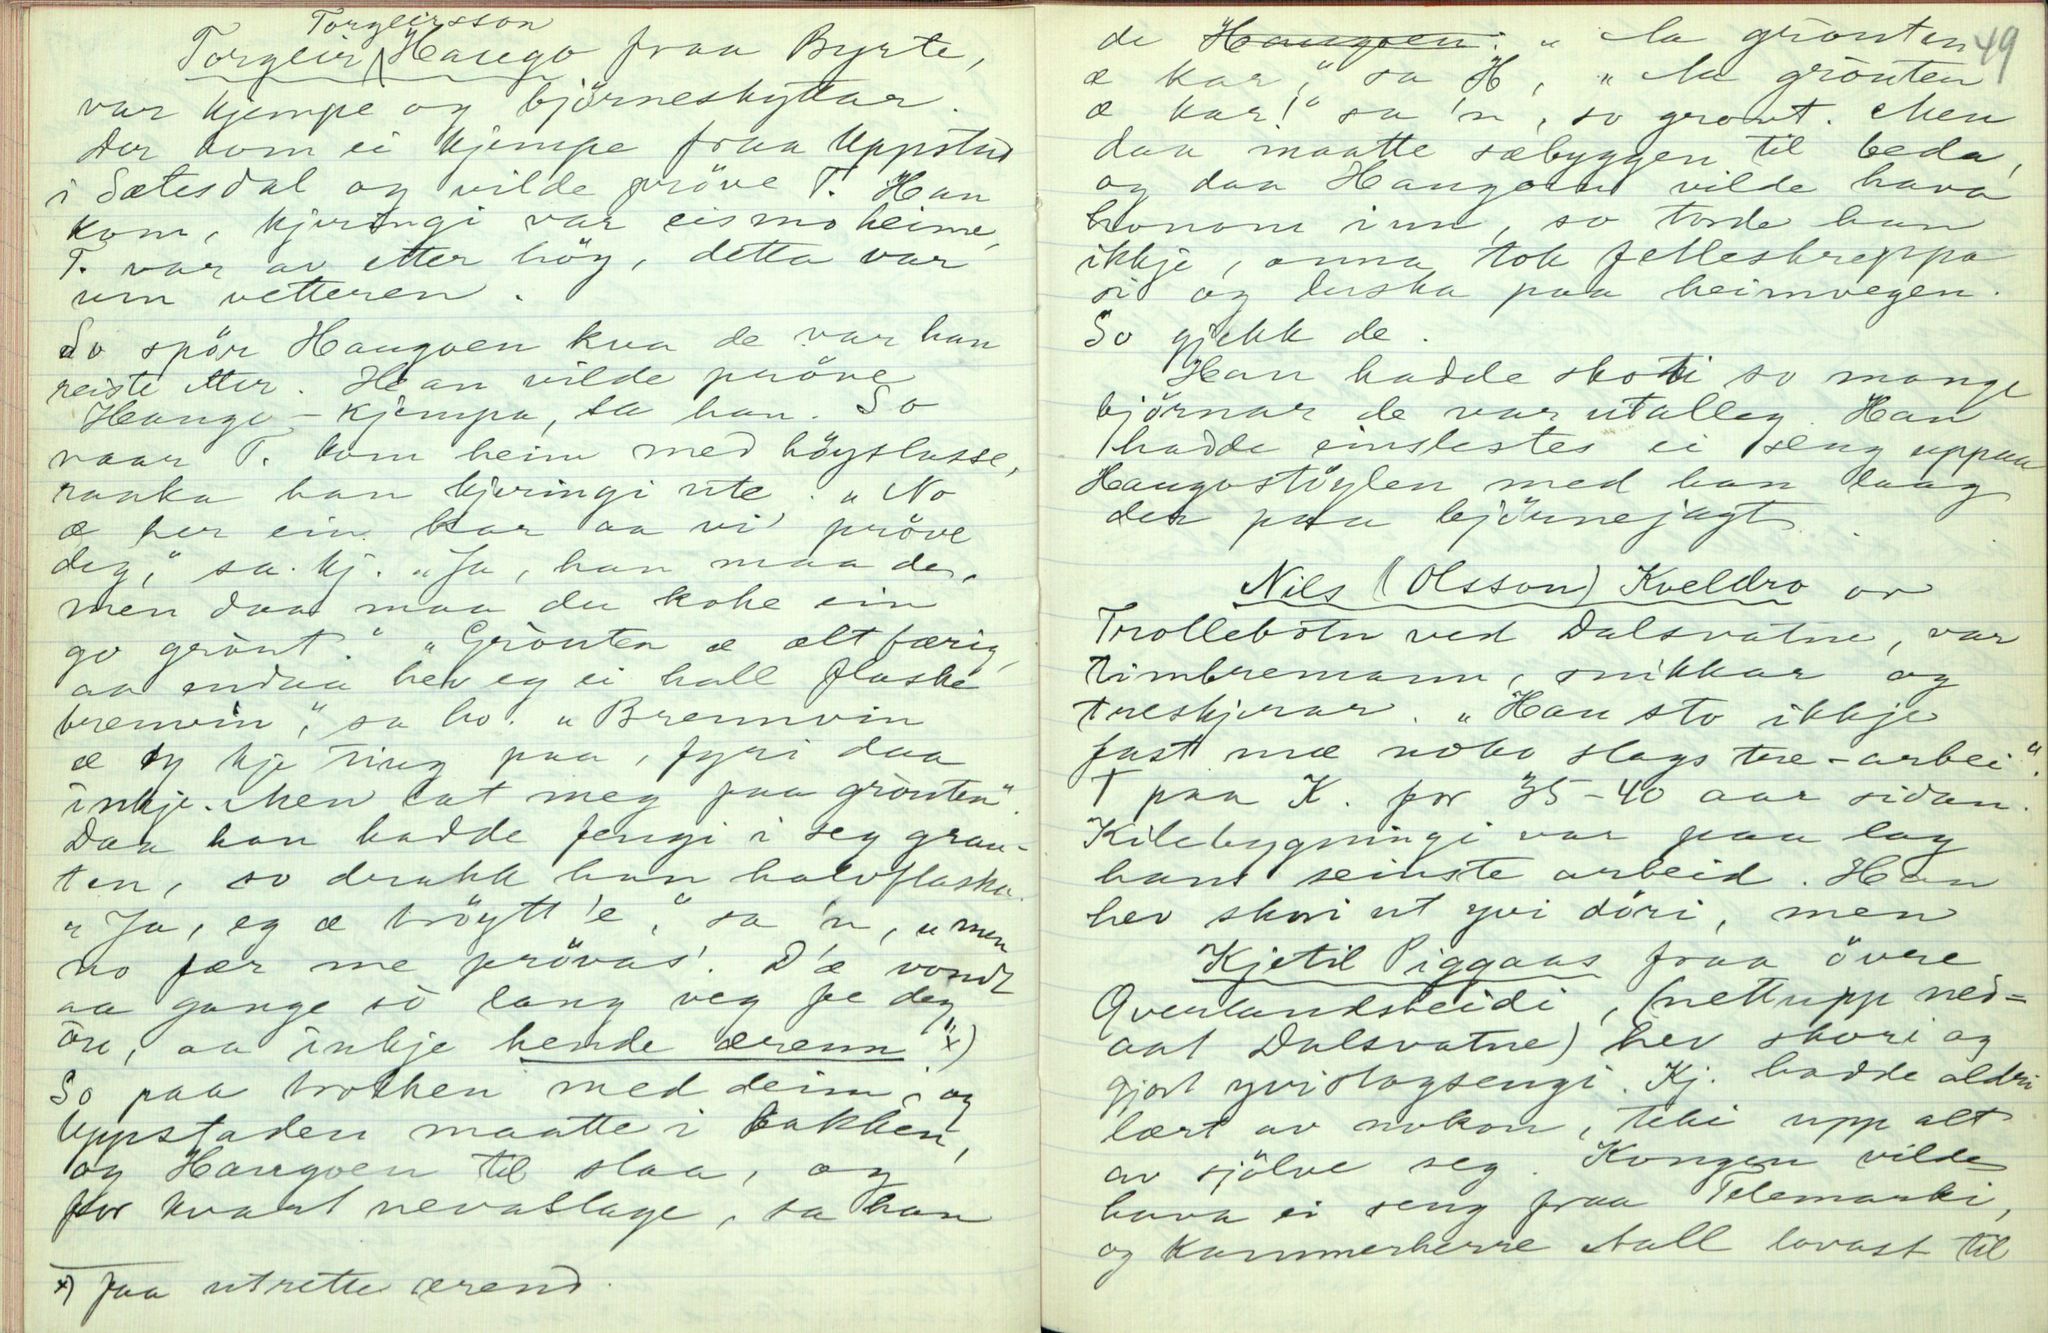 Torgeirsson
Torgeir Haugo fraa Byrte,
var kjempe og björneskyttar.
Der kom ei kjempe fraa Uppstad
i Sætesdal og vilde pröve T. Han
kom, kjeringi var eismo heime,
T. var av etter höy, detta var
um vetteren.
So spör Haugoen kva de var han
reiste etter. Han vilde pröve
Haugo-kjempa, sa han. So
naar T. kom heim med höyslasse,
raaka han kjeringi ute. „No
æ her ein kar aa vi' pröve
deg," sa kj. „Ja, han maa de,
men daa maa du koke ein
go grònt." „Grònten æ alt færig,
aa endaa hev eg ei hall flaske
brennvin," sa ho. „Brennvin
æ kje ting paa, fyri daa
inkje. Men lat meg faa grònten"
Daa han hadde fengi i seg grau-
ten, so drakk han halvflaska.
„Ja, eg æ tröytt 'e," sa 'n, „men
no fær me prövas'. D'æ vondt
aa gange sò lang veg fe deg
òu, aa inkje hende ærenn" x)
So paa trokken med deim, og
Uppstaden maatte i bakken,
og Haugoen til slaa, og
for kvart nevaslage, sa han
x) faa utrette ærend.
49
de Haugoen: „Aa grònten
æ kar," sa H, „Aa grònten
æ kar!" sa 'n, so gront. Men
daa maatte sæbyggen til beda,
og daa Haugoen vilde hava
honom inn, so torde han
ikkje, anna tok felleskreppa
si og luska paa heimvegen.
So gjekk de.
Han hadde skoti so mange
björnar de var utalleg. Han
hadde einslestes ei seng uppaa
Haugostöylen med han laag
der paa björnejagt.
Nils (Olsson) Kveldro or
Trollebotn ved Dalsvatne, var
timbremann, snikkar og
treskjerar. „Han sto ikkje
fast mæ noko slags tre-arbei".
† paa K. for 35-40 aar sidan.
Kilebygningi var paa lag
hans seinste arbeid. Han
hev skori ut yvi döri, men
Kjetil Piggaas fraa övre
Överlandsheidi, (nettupp ned-
aat Dalsvatne) hev skori og
gjort yvislagsengi. Kj. hadde aldri
lært av nokon, teki upp alt
av sjölve seg. Kongen vilde
hava ei seng fraa Telemarki,
og kammerherre Aall lovast til